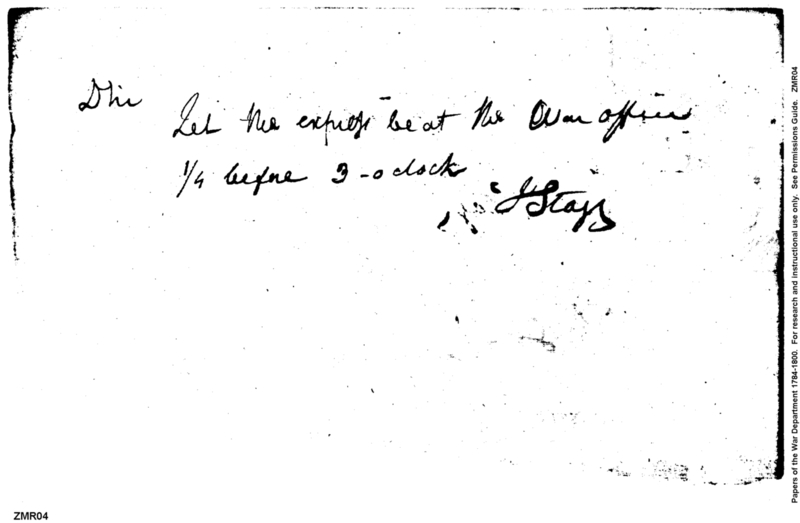 D Sir
Let the express be at the War office
1/4 before 3-oclock
J Stagg
Papers of the War Department 1784-1800. For research and instructional use only. See Permissions Guide. ZMR04
ZMR04